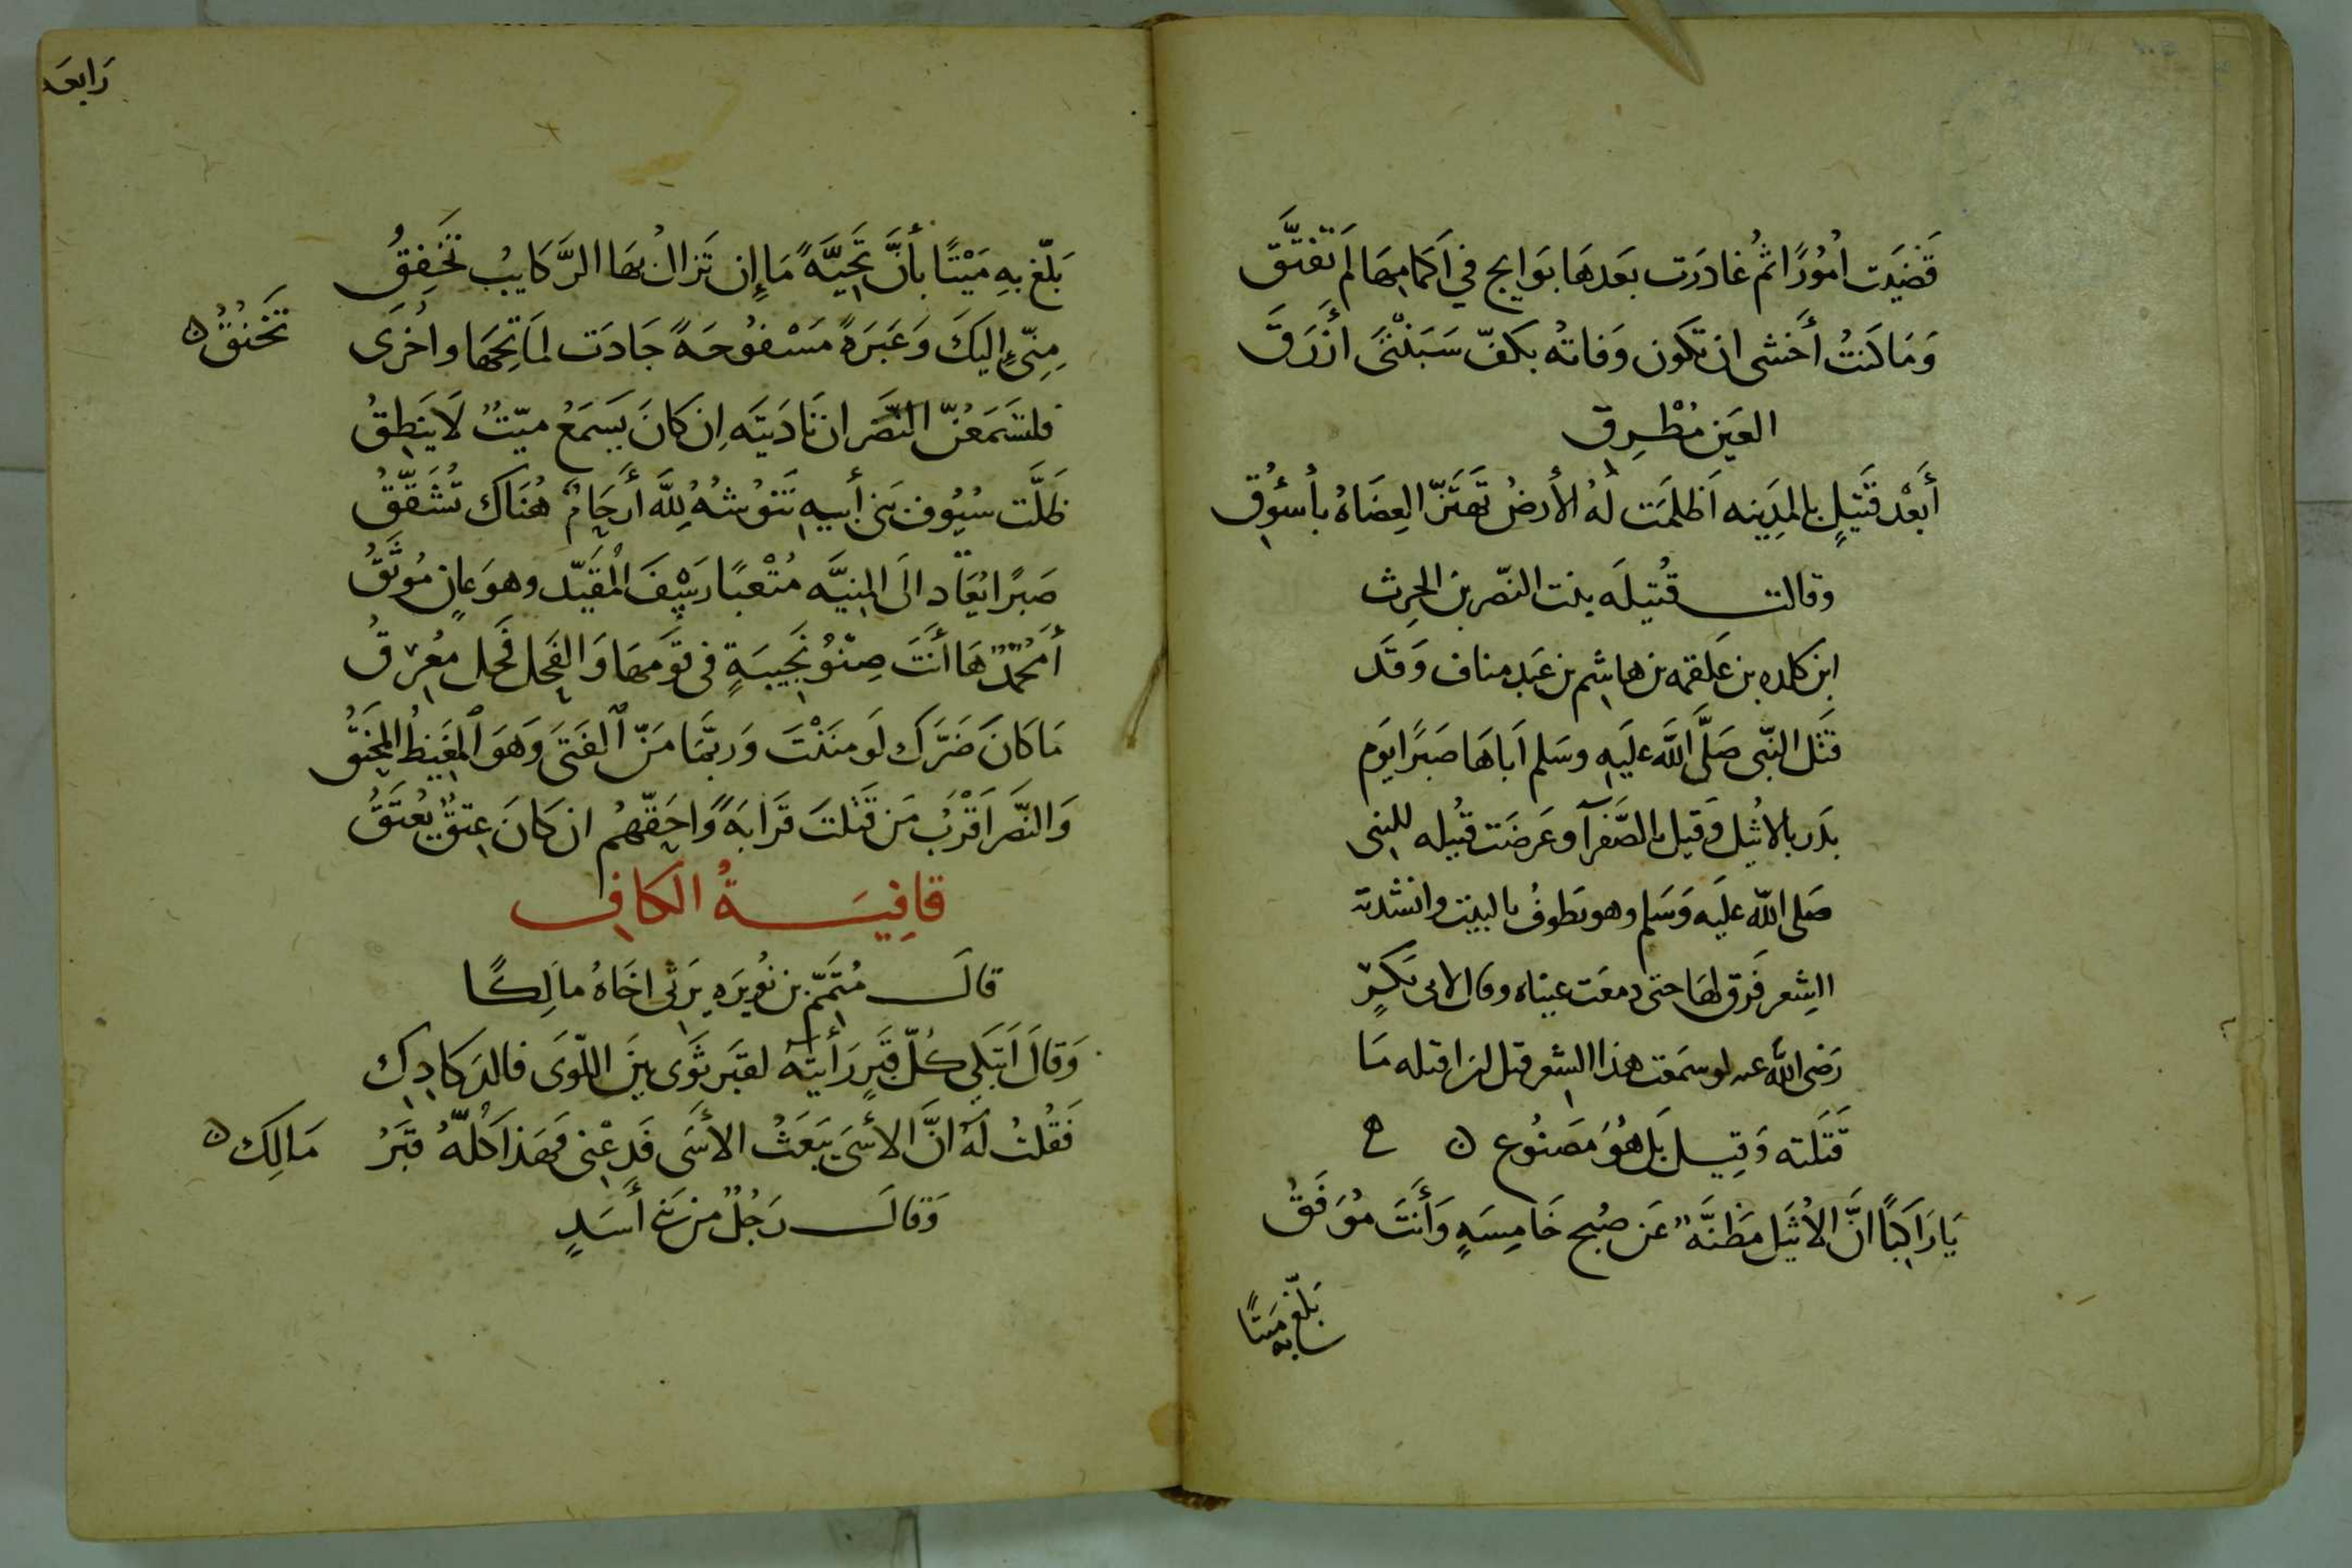 قَضَيَت اُمُورًا ثمُ غادَرَت بعَدهَا بَوَايج في اَكمامِهَا لَم تَفتَّق
وَمَا كنتُ أَخشى ان تكون وَفاتُه بكفّ سَبَنْتَى ازْرَقَ
العَين مُطْرِق
أَبعْد قَتيلٍ بالمدِينه اَظلمَت لهُ الأَرضُ تَهتَزّ العِضَاهُ بأسْؤُق
وقالت قُتيلَه بنت النضر بن الحرِث
ابن كلده بن عَلقمه بن هاشِم بن عَبد مناف وَقَد
قتَل النّبى صَلَّى اللَّه علَيهِ وسَلم اَباهَا صَبرًا يَوم
بدَر بالاثيل وَقيل بالصَّفرآ وعَرضَت قتيله للنبى
صَلى اللّه عليَه وَسَلم وهو يطوفُ بالبيت وانشدته
الشِعر فَرَق لهَا حتى دمعَت عيناه وقال لابى بَكرٍ
رَضى اللَّه عنه لو سَمعت هذا الشعر قبل ان اقتله مَا
قَتَلته وَقيِل بَل هُوَ مَصنُوع ن
يَا رَاكبًا انَّ الاُثيَل مَظنَّةٌ عَن صُبح خَامِسَهٍ وَأَنتَ مُوَفَقُ
بَلّغ به مَيتًا
رَابعَه
بَلّغ بهِ مَيْتًا بأنَّ تَحِيَّهً مَا إِن تَزالُ بهَا الرَّكايبُ تَخفِقُ
مِنّى إِليكَ وَعَبَرَهً مَسْفوُحَهً جَادَت لمَاتِحِهَا واُخرَى تَخْنقُ ن
فلتَسمَعَنّ النضَر ان نَادَيتَه اِن كانَ يَسمَعُ ميّتٌ لَا يَنطِقُ
ظلَّت سُيُوف بَنى أَبيهِ تَنوُشُهُ لِلَّه أَرحَامٌ هُنَاكَ تُشَقَّقُ
صَبرًا يُقاد الَى المنِيَّه مُتعَبًا رَسْفَ المُقَيَّد وهوَ عانٍ مُوثَقُ
أَمُحمَّدٌ هَا أَنتَ صِنْوُ نَجَيبَةٍ فى قوَمهَا وَالفَحِل فَحل مُعْرِقُ
مَا كانَ ضَرَّكَ لَو مَنَنْتَ وَرُبَّمَا مَنّ الفَتَى وَهوَ المغَيظُ المحنَقُ
وَالنّضَر اَقْرَبُ مَن قَتَلتَ قَرَابَهً وَاحَقّهُم ان كَانَ عِتقٌ يُعتَقُ
قافِيَةُ الكافِ
قالَ مُتمّم بن نُويَره يَرثى اخَاهُ مالِكًا
وَقالَ اَتبَكى كُلّ قبَرٍ رَأَيتَهُ لقبَر ثَوَى بيَن اللّوَى فالدكَادِكِ
فَقُلتُ لَهُ انَّ الاَسَى يَبعَثُ الاَسَى فَدِعْنِى فهَذا كُلّهُ قبَرُ مَالِكِ ن
وَقالَ رَجُلٌ من بَنى أَسَدٍ